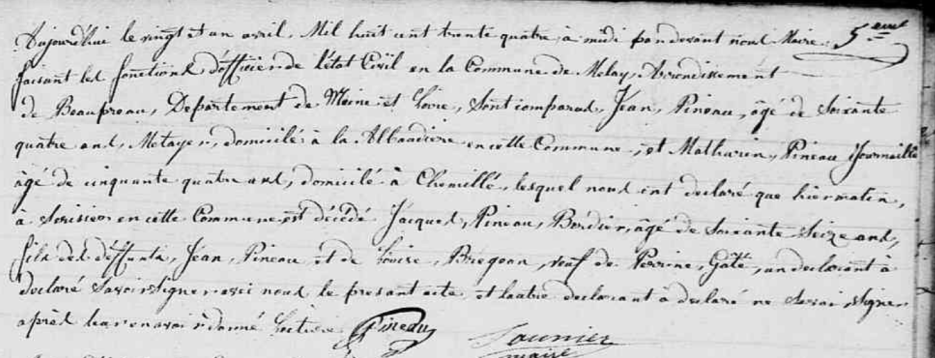 Aujourd'hui le vingt et un avril, Mil huit cent trente quatre, a midi par devant nous Maire 5eme
faisant les fonctions d'officier de l'état Civil en la Commune de Melay Arrondissement
de Beaupreau, Departement de Maine et Loire, sont comparus Jean, Pineau, âgé de Soixante
quatre ans, Metayer, domicilé à la en cette Commune, et Mathurin, Pineau Journaillé
âgé de cinquante quatre ans, domicilé à Chemillé, lesquel nous ont declaré que hier matin,
à en cette Commune, est décédé Jacques, Pineau, Bordier, âgé de Soixante Seize ans,
fils des deffunts, Jean, Pineau et de Louise, Bregeon, veuf de Perrine, Gaté, un declarant à
declaré Savoir signer avec nous le present acte et lautre declarant à declaré ne Savoir Signer
après leur en avoir donné lecture Pineau Tournier
maire